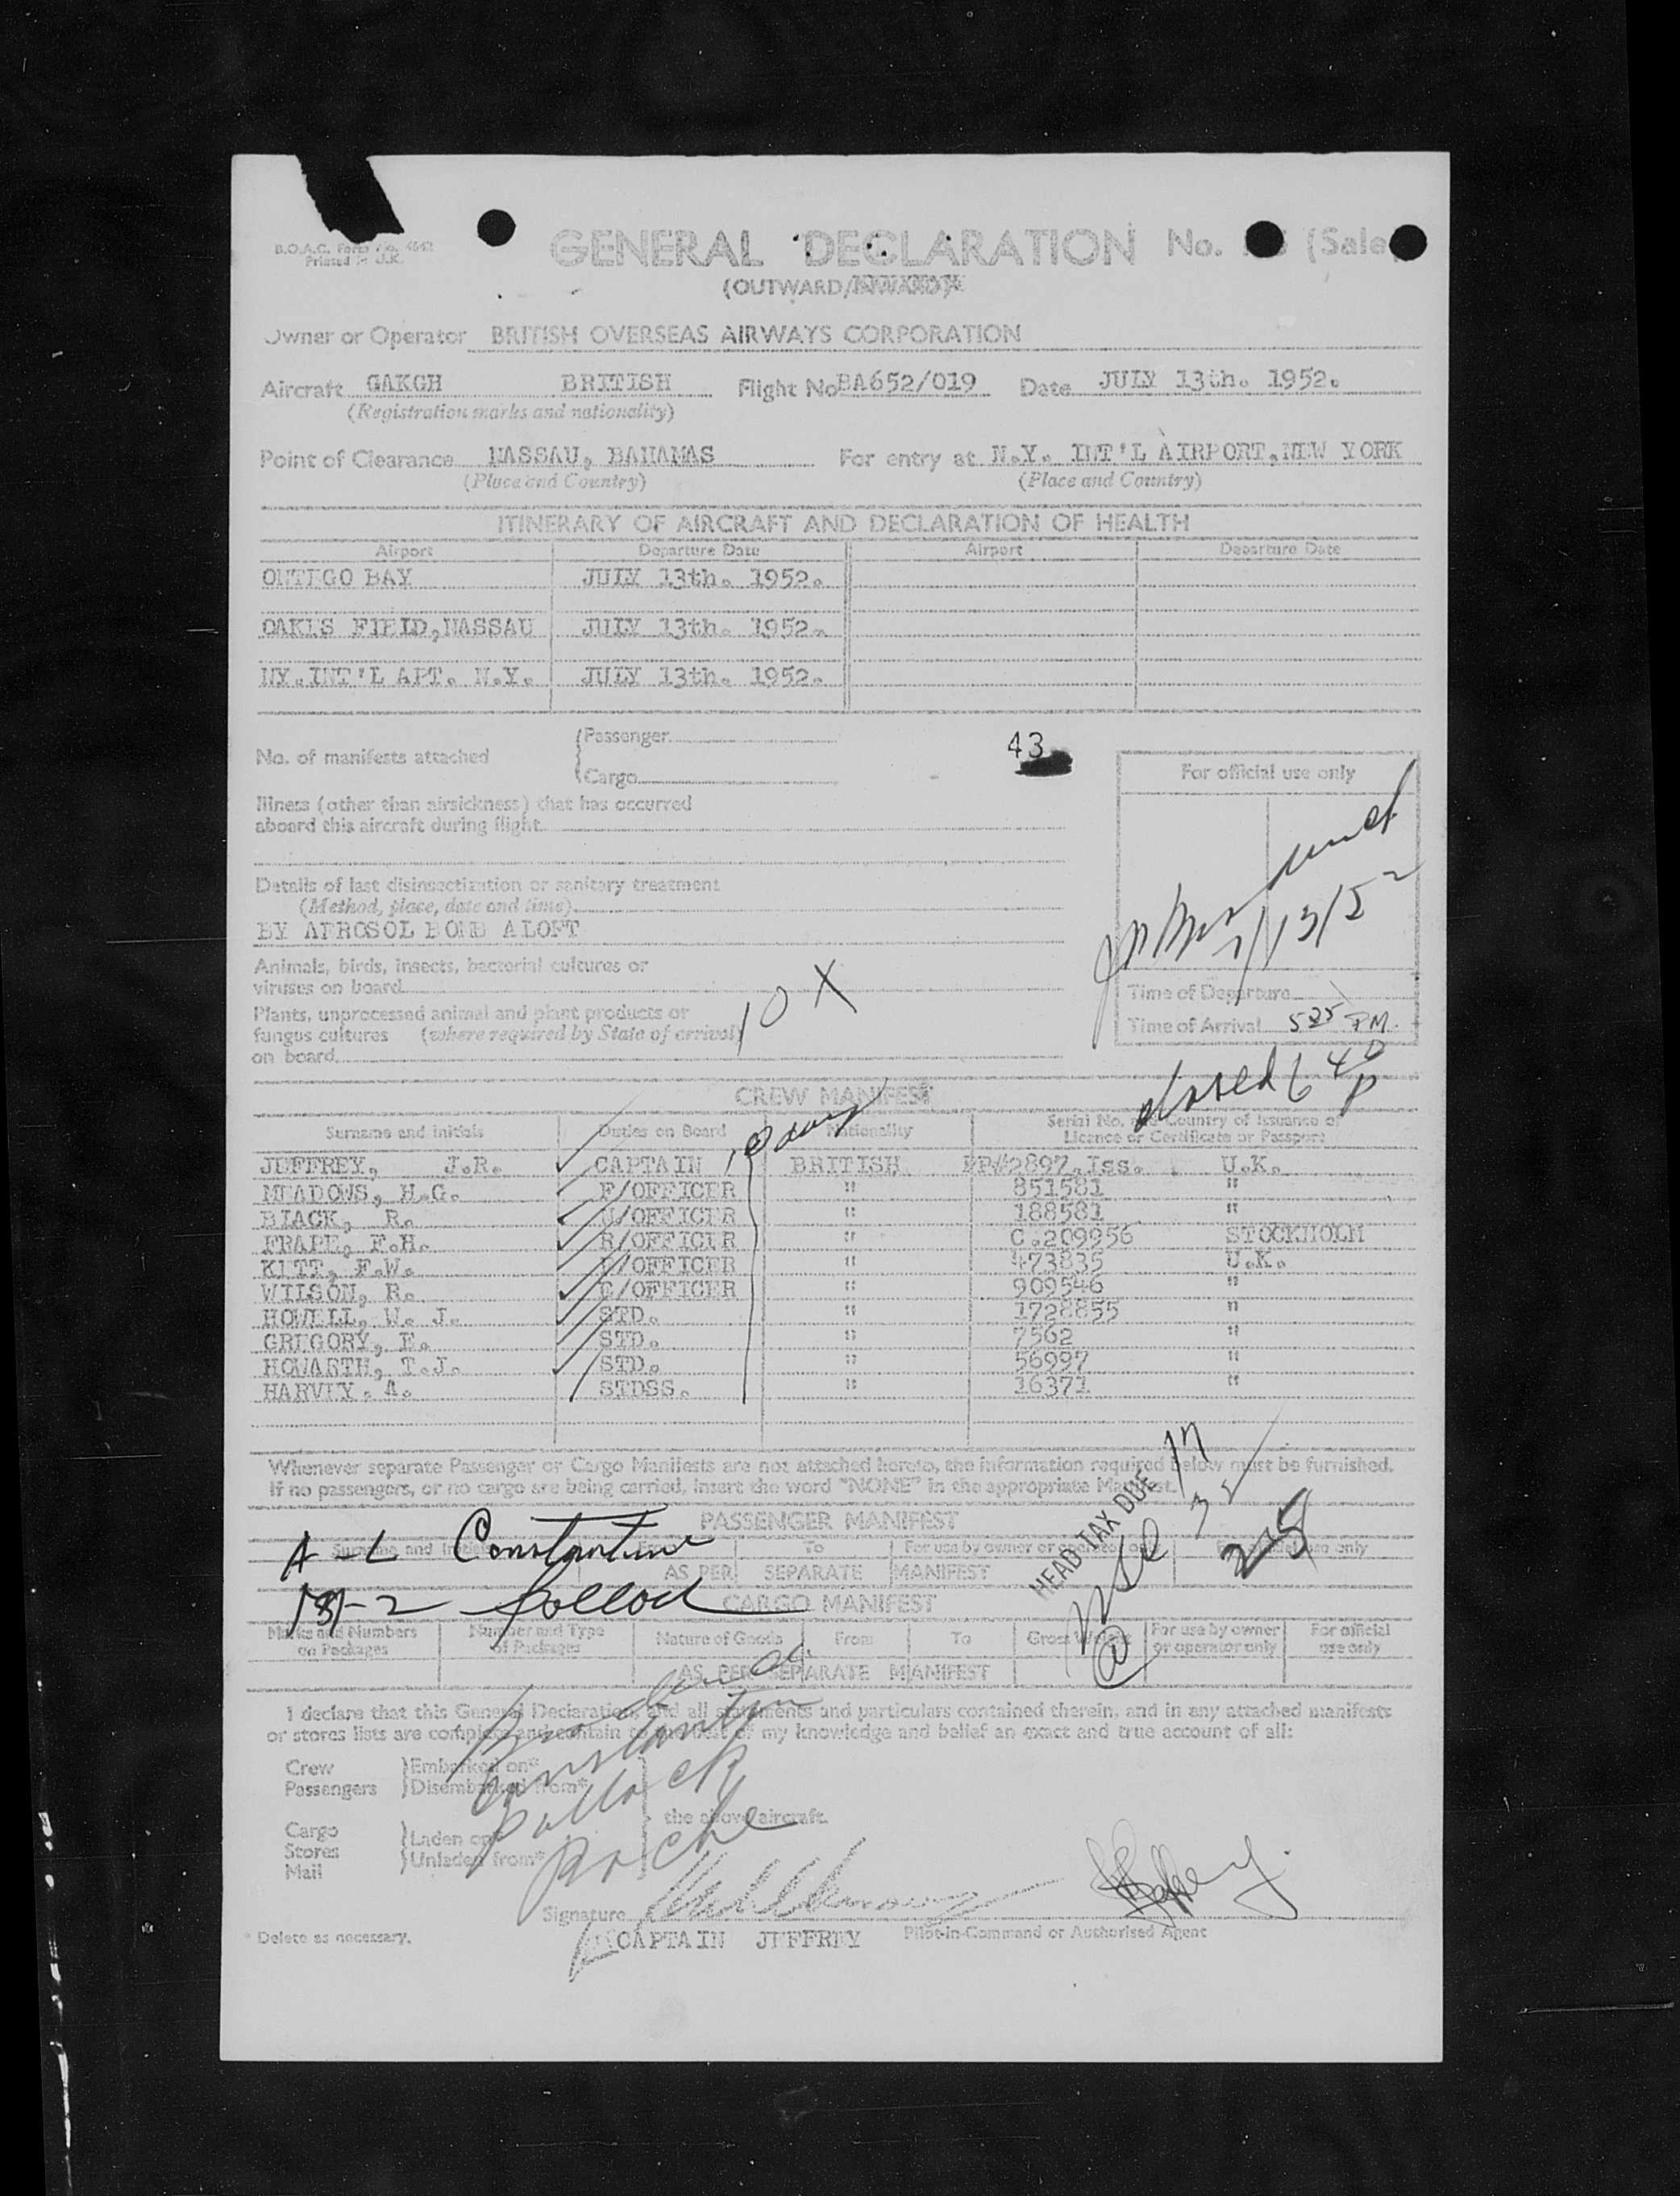 B.O.A.C. Form No. 4642
Printed in U.K.
GENERAL DECLARATION No. (Sale
(OUTWARD/INWARD)*
Owner or Operator BRITISH OVERSEAS AIRWAYS CORPORATION
Aircraft GAKGH BRITISH Flight No BA652/019 Date JULY 13th. 1952.
(Registration marks and nationality)
Point of Clearance NASSAU, BAHAMAS For entry at N.Y. INT'L AIRPORT, NEW YORK
(Place and Country) (Place and Country)
ITINERARY OF AIRCRAFT AND DECLARATION OF HEALTH
Airport Departure Date Airport Departure Date
ONTEGO BAY JULY 13th. 1952.
OAKES FIELD, NASSAU JULY 13th. 1952.
NY. INT'L APT. N.Y. JULY 13th. 1952.
No. of manifests attached Passenger 43
Cargo
For official use only
Illness (other than airsickness) that has occurred
aboard this aircraft during flight
Details of last disinsectization or sanitary treatment
(Method, place, date and time)
BY AEROSOL BOMB ALOFT
7/13/52
Animals, birds, insects, bacterial cultures or
viruses on board
10 X
Time of Departure
Plants, unprocessed animal and plant products or
fungus cultures (where required by State of arrival)
on board
Time of Arrival 525 PM.
closed 6 40 P
CREW MANIFEST
Surname and initials Duties on Board Nationality Serial No. and Country of Issuance of
Licence or Certificate or Passport
JEFFREY, J.R. CAPTAIN BRITISH PP#2897. Iss. U.K.
MEADOWS, H.G. F/OFFICER " 851581 "
BLACK, R. /OFFICER " 188581 "
FRAPE, F.H. R/OFFICER " C.209956 STOCKHOLM
KITT, F.W. /OFFICER " 473835 U.K.
WILSON, R. E/OFFICER " 909546 "
HOWELL, W. J. STD. " 1728855 "
GREGORY, E. STD. " 7562 "
HOWARTH, T.J. STD. " 56997 "
HARVEY. A. STDSS. " 16371 "
Whenever separate Passenger or Cargo Manifests are not attached hereto, the information required below must be furnished.
If no passengers, or no cargo are being carried, insert the word "NONE" in the appropriate Manifest.
HEAD TAX DUE 17
PASSENGER MANIFEST
A-L Constantine
Surname and Initials From To For use by owner or operator only For official use only
AS PER SEPARATE MANIFEST
M-2 Pollock
CARGO MANIFEST
Marks and Numbers on Packages Number and Type of Packages Nature of Goods From To Gross Weight For use by owner or operator only For official use only
AS PER SEPARATE MANIFEST
I declare that this General Declaration, and all statements and particulars contained therein, and in any attached manifests
or stores lists are complete and contain to the best of my knowledge and belief an exact and true account of all:
Constantine
Pollock
Roche
Crew Embarked on*
Passengers Disembarked from*
the above aircraft.
Cargo Laden on*
Stores Unladen from*
Mail
Signature
CAPTAIN JEFFREY Pilot-in-Command or Authorised Agent
* Delete as necessary.